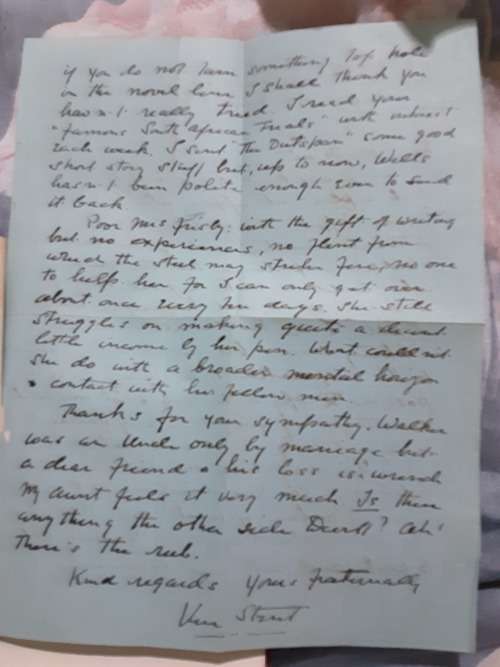 if you do not turn something top hole
in the novel line I shall think you
hasn't really tried. I read your
"Famous South African Trials" with interest
each week. I sent "The Outspan" some good
short story stuff but, up to now, Wells
hasn't been polite enough even to send
it back
Poor Mrs Frisby: with the gift of writing
but no experiences, no flint from
which the steel may strike fire, no one
to help her for I can only get over
about once every ten days. She still
struggles on making quite a decent
little income by her pen. What couldn't
she do with a broader mental horizon
& contact with her fellow men.
Thanks for your sympathy. Walker
was an Uncle only by marriage but
a dear friend & his loss is a wrench
My aunt feels it very much Is there
anything the other side Death? Ah!
There's the rub.
Kind regards Yours fraternally